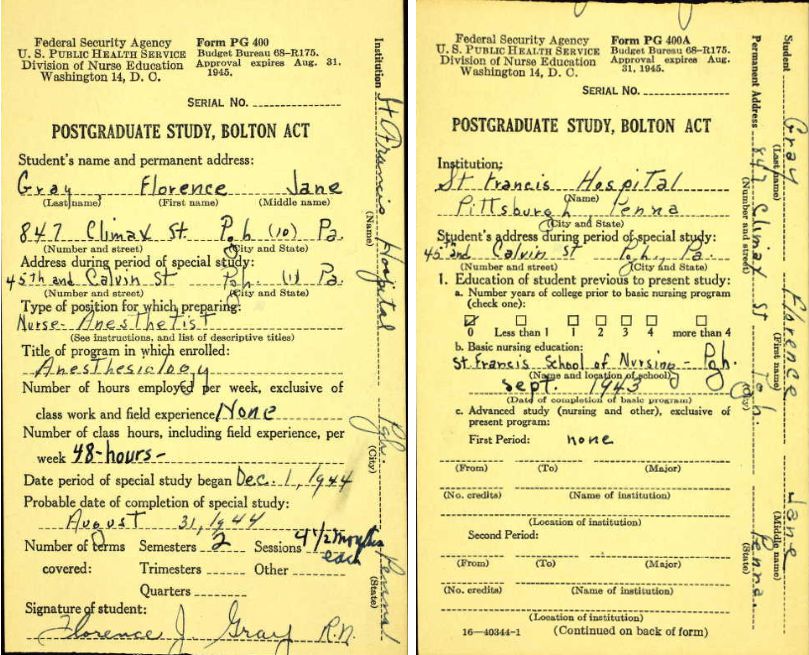 Federal Security Agency Form PG 400
U. S. PUBLIC HEALTH SERVICE Budget Bureau 68–R175.
Division of Nurse Education Approval expires Aug. 31,
Washington 14, D. C. 1945.
SERIAL NO.
POSTGRADUATE STUDY, BOLTON ACT
Student's name and permanent address:
Gray Florence Jane
(Last name) (First name) (Middle name)
847 Climax St. Pgh (10) Pa.
(Number and street) (City and State)
Address during period of special study:
45th and Calvin St Pgh. (1) Pa.
(Number and street) (City and State)
Type of position for which preparing:
Nurse-Anesthetist
(See instructions, and list of descriptive titles)
Title of program in which enrolled:
Anesthesiology
Number of hours employed per week, exclusive of
class work and field experience None
Number of class hours, including field experience, per
week 48-hours-
Date period of special study began Dec. 1, 1944
Probable date of completion of special study:
August 31, 1944
Number of terms Semesters 2 Sessions 4 1/2 months
each
covered: Trimesters Other
Quarters
Signature of student:
Florence J. Gray R.N.
Institution St Francis Hospital Pgh. Penna
(Name) (City) (State)
Form PG 400A
Federal Security Agency Budget Bureau 68–R175.
U. S. PUBLIC HEALTH SERVICE Approval expires Aug.
Division of Nurse Education 31, 1945.
Washington 14, D. C.
SERIAL NO.
POSTGRADUATE STUDY, BOLTON ACT
Institution:
St Francis Hospital
(Name)
Pittsburgh Penna
(City and State)
Student's address during period of special study:
45th and Calvin St Pgh. Pa.
(Number and street) (City and State)
1. Education of student previous to present study:
a. Number years of college prior to basic nursing program
(check one):
0 Less than 1 1 2 3 4 more than 4
b. Basic nursing education:
St. Francis School of Nursing - Pgh.
(Name and location of school)
Sept. 1943
(Date of completion of basic program)
c. Advanced study (nursing and other), exclusive of
present program:
First Period: none
(From) (To) (Major)
(No. credits) (Name of institution)
(Location of institution)
Second Period:
(From) (To) (Major)
(No. credits) (Name of institution)
(Location of institution)
16—40344-1 (Continued on back of form)
Student Gray Florence Jane
(Last name) (First name) (Middle name)
Permanent Address 847 Climax St Pgh. Penna.
(Number and street) (City) (State)